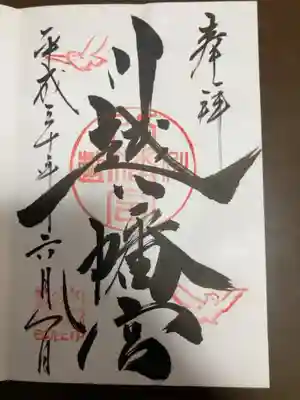 奉拝
川越八幡宮
平成三十年六月八日